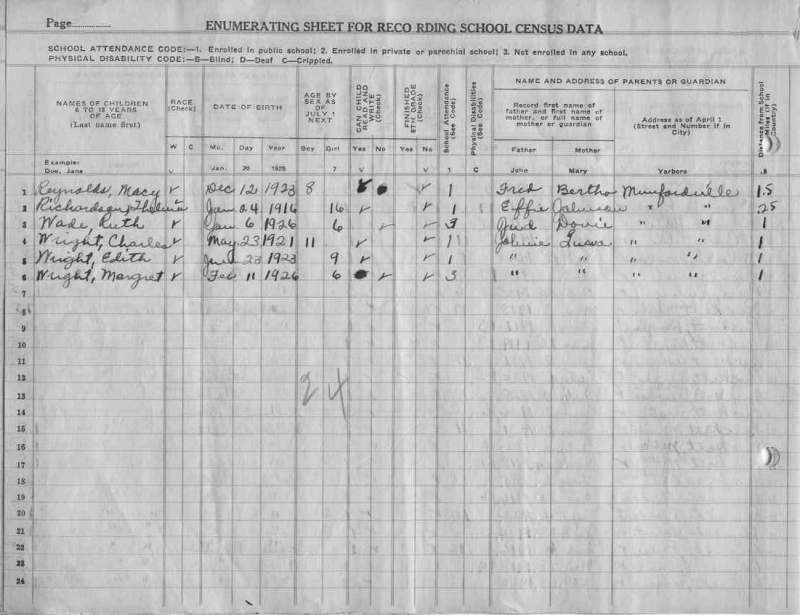 Page
ENUMERATING SHEET FOR RECO RDING SCHOOL CENSUS DATA
SCHOOL ATTENDANCE CODE:—1. Enrolled in public school; 2. Enrolled in private or parochial school; 3. Not enrolled in any school.
PHYSICAL DISABILITY CODE:—B—Blind; D—Deaf C—Crippled.
NAMES OF CHILDREN 6 TO 18 YEARS OF AGE (Last name first.) RACE (Check) DATE OF BIRTH AGE BY SEX AS OF JULY 1 NEXT CAN CHILD READ AND WRITE (Check) FINISHED 8TH GRADE (Check) School Attendance (See Code) Physical Disabilities (See Code) NAME AND ADDRESS OF PARENTS OR GUARDIAN Distance from School Miles (if in Country)
Record first name of father and first name of mother, or full name of mother or guardian Address as of April 1 (Street and Number if in City)
W C Mo. Day Year Boy Girl Yes No Yes No Father Mother
Example: Doe, Jane v Jan. 20 1925 7 v v 1 C John Mary Yarbors .8
1 Reynolds, Macy ✓ Dec 12 1923 8 ✓ ✓ 1 Fred Bertha Munfordville 1.5
2 Richardson, Thelma ✓ Jan 24 1916 16 ✓ ✓ 1 Effie Johnson " " .25
3 Wade, Ruth ✓ Jan 6 1926 6 ✓ ✓ 3 Dovie " " 1
4 Wright, Charles ✓ May 23 1921 11 ✓ ✓ 1 Johnie " " 1
5 Wright, Edith ✓ 23 1923 9 ✓ ✓ 1 " " " " 1
6 Wright, Margret ✓ Feb 11 1926 6 ✓ ✓ 3 " " " " 1
7
8
9
10
11
12
13
14
15
16
17
18
19
20
21
22
23
24
24